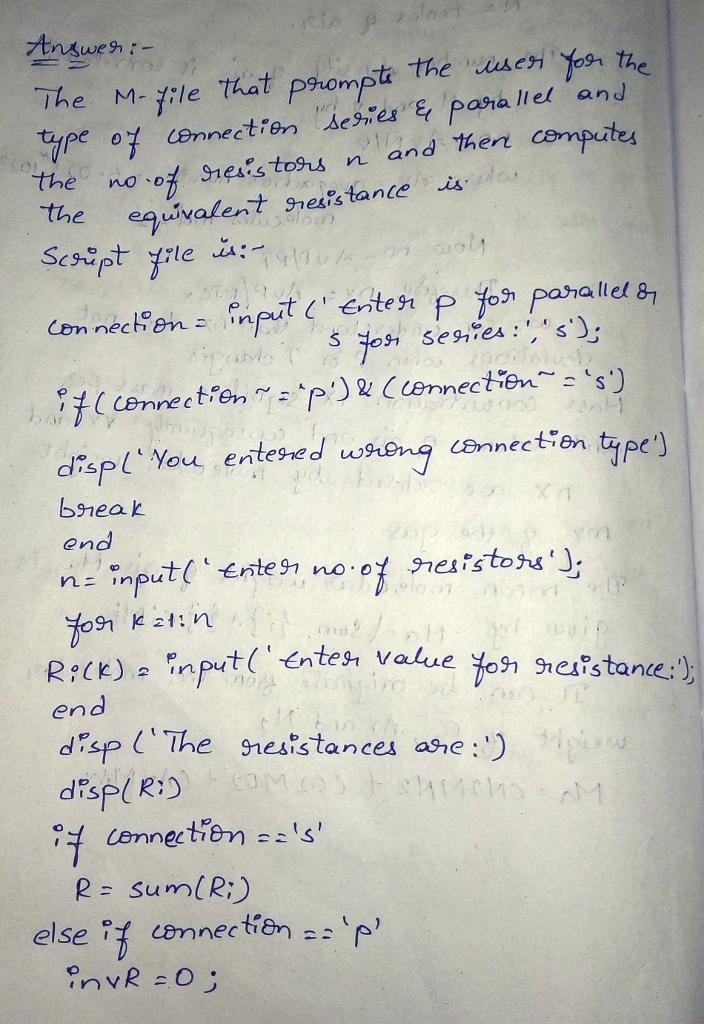 Answer :-
The M-file that prompts the user for the
type of connection series & parallel and
the no.of resistors n and then computes
the equivalent resistance is.
Script file is:-
connection = input (' Enter p for parallel or
s for series:','s');
if( connection ~='p') & (connection~='s')
disp(' You entered wrong connection type')
break
end
n= input(' Enter no.of resistors');
for k=1:n
Ri(k) = input(' Enter value for resistance:');
end
disp (' The resistances are:')
disp(Ri)
if connection =='s'
R = sum(Ri)
else if connection =='p'
invR =0;